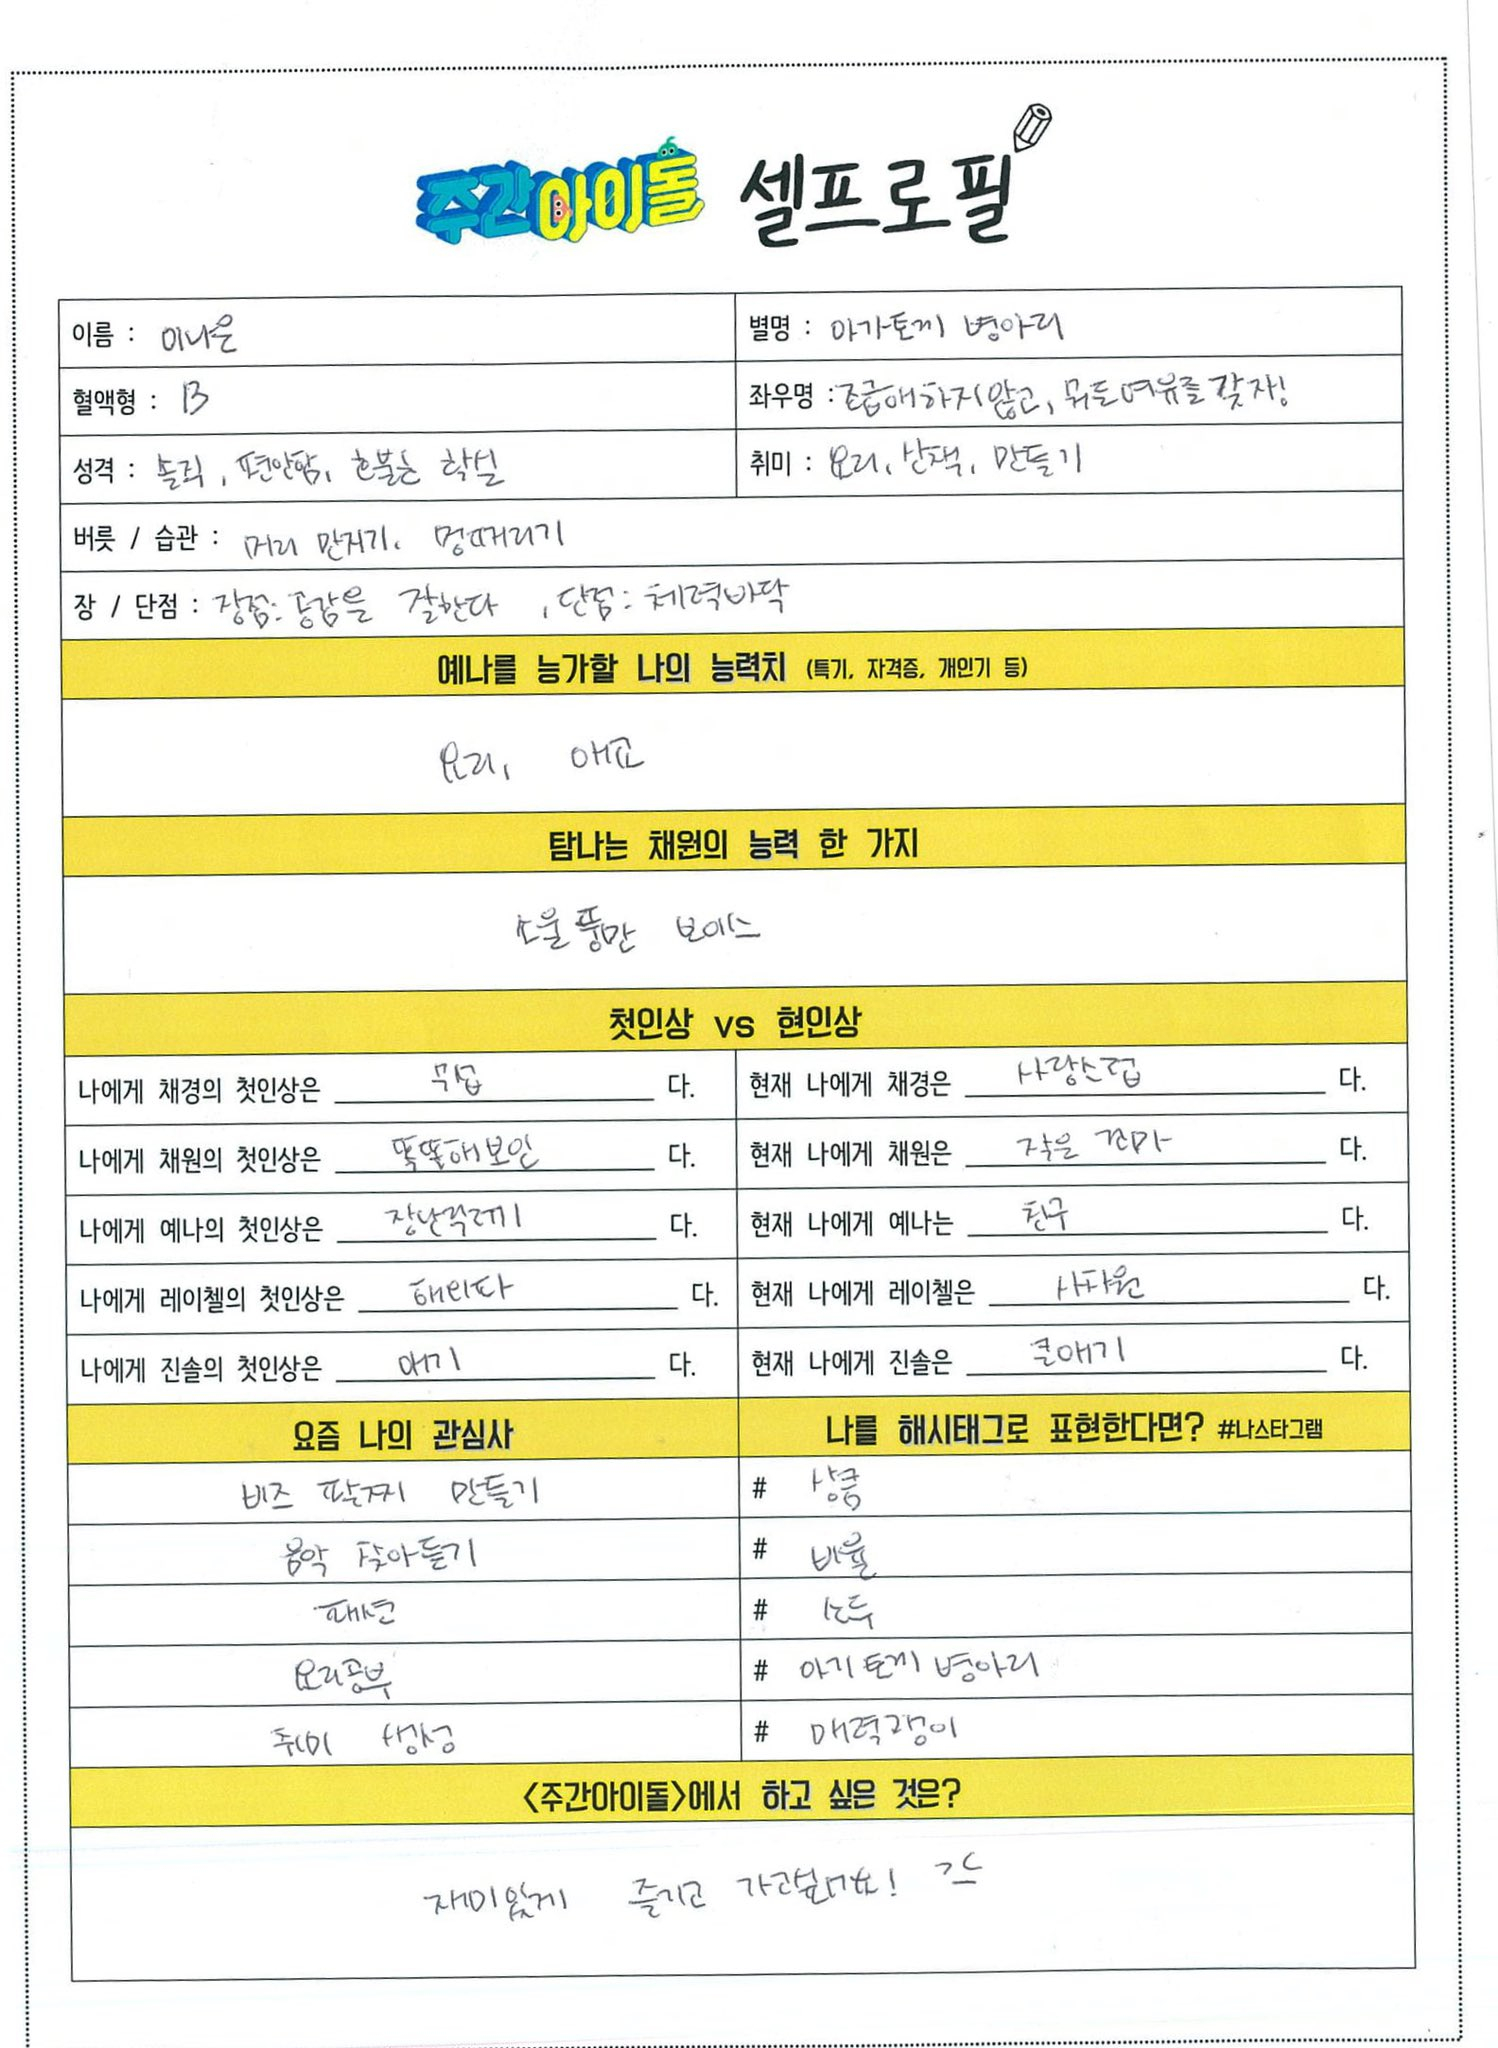 주간아이돌 셀프로필
이름 : 이나은
별명 : 아가토끼 병아리
혈액형 : B
좌우명 : 조급해하지않고, 뭐든여유를갖자!
성격 : 솔직, 편안함, 호불호 확실
취미 : 요리, 산책, 만들기
버릇 / 습관 : 머리 만지기, 멍때리기
장 / 단점 : 장점: 공감을 잘한다 , 단점: 체력바닥
예나를 능가할 나의 능력치 (특기, 자격증, 개인기 등)
요리, 애교
탐나는 채원의 능력 한 가지
소울풍만 보이스
첫인상 vs 현인상
나에게 채경의 첫인상은 무섭 다.
현재 나에게 채경은 사랑스럽 다.
나에게 채원의 첫인상은 똑똑해보인 다.
현재 나에게 채원은 작은 꼬마 다.
나에게 예나의 첫인상은 장난꾸러기 다.
현재 나에게 예나는 친구 다.
나에게 레이첼의 첫인상은 해외파 다.
현재 나에게 레이첼은 사차원 다.
나에게 진솔의 첫인상은 애기 다.
현재 나에게 진솔은 큰애기 다.
요즘 나의 관심사
나를 해시태그로 표현한다면? #나스타그램
비즈 팔찌 만들기
# 상큼
음악 찾아듣기
# 비율
패션
# 논두
요리공부
# 아기토끼병아리
취미 생성
# 매력쟁이
<주간아이돌>에서 하고 싶은 것은?
재미있게 즐기고 가고싶어요! ㄱㅅ